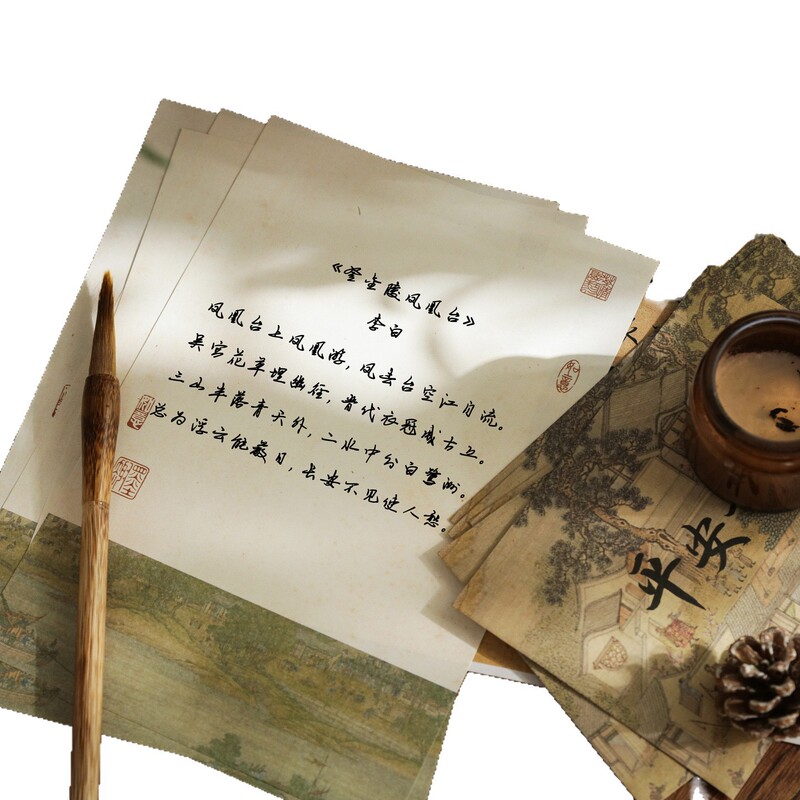 《登金陵凤凰台》
李白
凤凰台上凤凰游，凤去台空江自流。
吴宫花草埋幽径，晋代衣冠成古丘。
三山半落青天外，二水中分白鹭洲。
总为浮云能蔽日，长安不见使人愁。
如意
平安